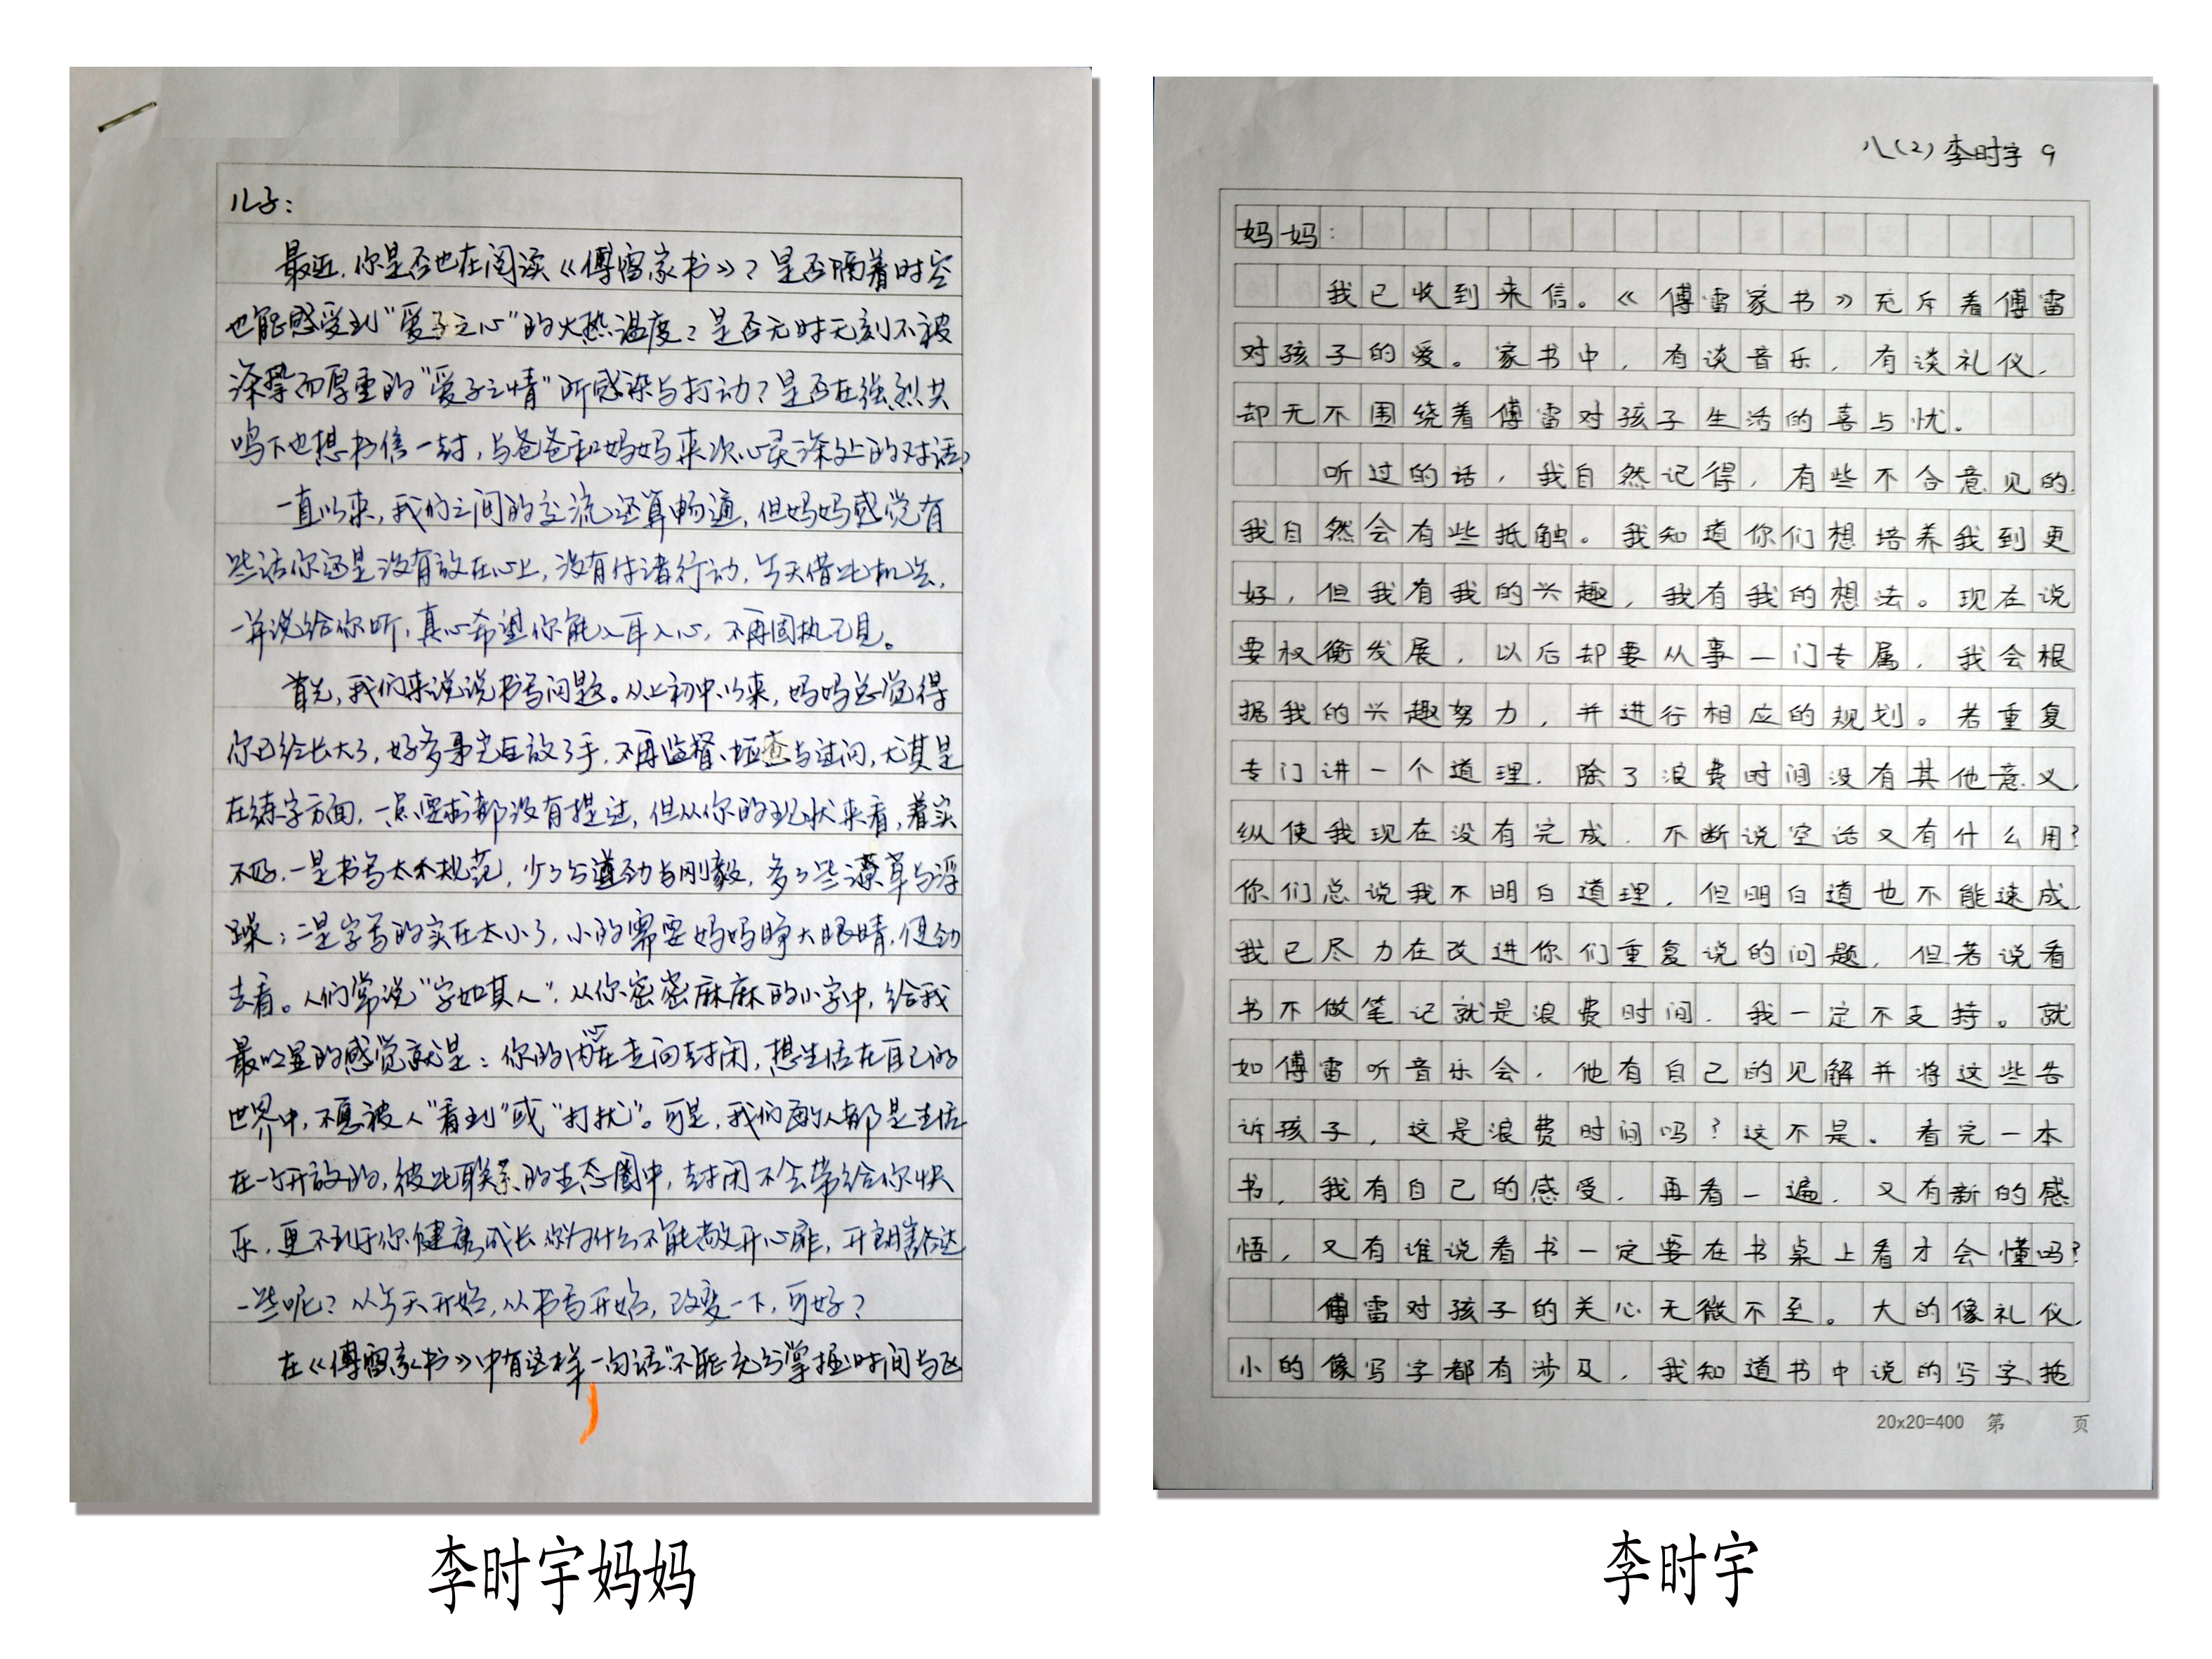 儿子：
最近，你是否也在阅读《傅雷家书》？是否隔着时空
也能感受到“爱子之心”的火热温度？是否无时无刻不被
深挚而厚重的“爱子之情”所感染与打动？是否在强烈共
鸣下也想书信一封，与爸爸和妈妈来次心灵深处的对话？
一直以来，我们之间的交流还算畅通，但妈妈感觉有
些话你还是没有放在心上，没有付诸行动，今天借此机会，
一并说给你听，真心希望你能入耳入心，不再固执己见。
首先，我们来说说书写问题。从上初中以来，妈妈总觉得
你已经长大了，好多事完全放了手，不再监督、检查与过问，尤其是
在练字方面，一点要求都没有提过，但从你的现状来看，着实
不好，一是书写太不规范，少了分遒劲与刚毅，多了些潦草与浮
躁；二是字写的实在太小了，小的需要妈妈睁大眼睛，使劲
去看。人们常说“字如其人”，从你密密麻麻的小字中，给我
最明显的感觉就是：你的内心在走向封闭，想生活在自己的
世界中，不愿被人“看到”或“打扰”。可是，我们每个人都是生活
在一个开放的，彼此联系的生态圈中，封闭不会带给你快
乐，更不利于你健康成长，你为什么不能敞开心扉，开朗豁达
一些呢？从今天开始，从书写开始，改变一下，可好？
在《傅雷家书》中有这样一句话“不能充分掌握时间与区
李时宇妈妈
八（2）李时宇 9
妈妈：
我已收到来信。《傅雷家书》充斥着傅雷
对孩子的爱。家书中，有谈音乐，有谈礼仪，
却无不围绕着傅雷对孩子生活的喜与忧。
听过的话，我自然记得，有些不合意见的，
我自然会有些抵触。我知道你们想培养我到更
好，但我有我的兴趣，我有我的想法。现在说
要权衡发展，以后却要从事一门专属，我会根
据我的兴趣努力，并进行相应的规划。若重复
专门讲一个道理，除了浪费时间没有其他意义，
纵使我现在没有完成，不断说空话又有什么用？
你们总说我不明白道理，但明白道也不能速成，
我已尽力在改进你们重复说的问题，但若说看
书不做笔记就是浪费时间，我一定不支持。就
如傅雷听音乐会，他有自己的见解并将这些告
诉孩子，这是浪费时间吗？这不是。看完一本
书，我有自己的感受，再看一遍，又有新的感
悟，又有谁说看书一定要在书桌上看才会懂吗？
傅雷对孩子的关心无微不至。大的像礼仪，
小的像写字都有涉及，我知道书中说的写字、拖
20x20=400 第 页
李时宇